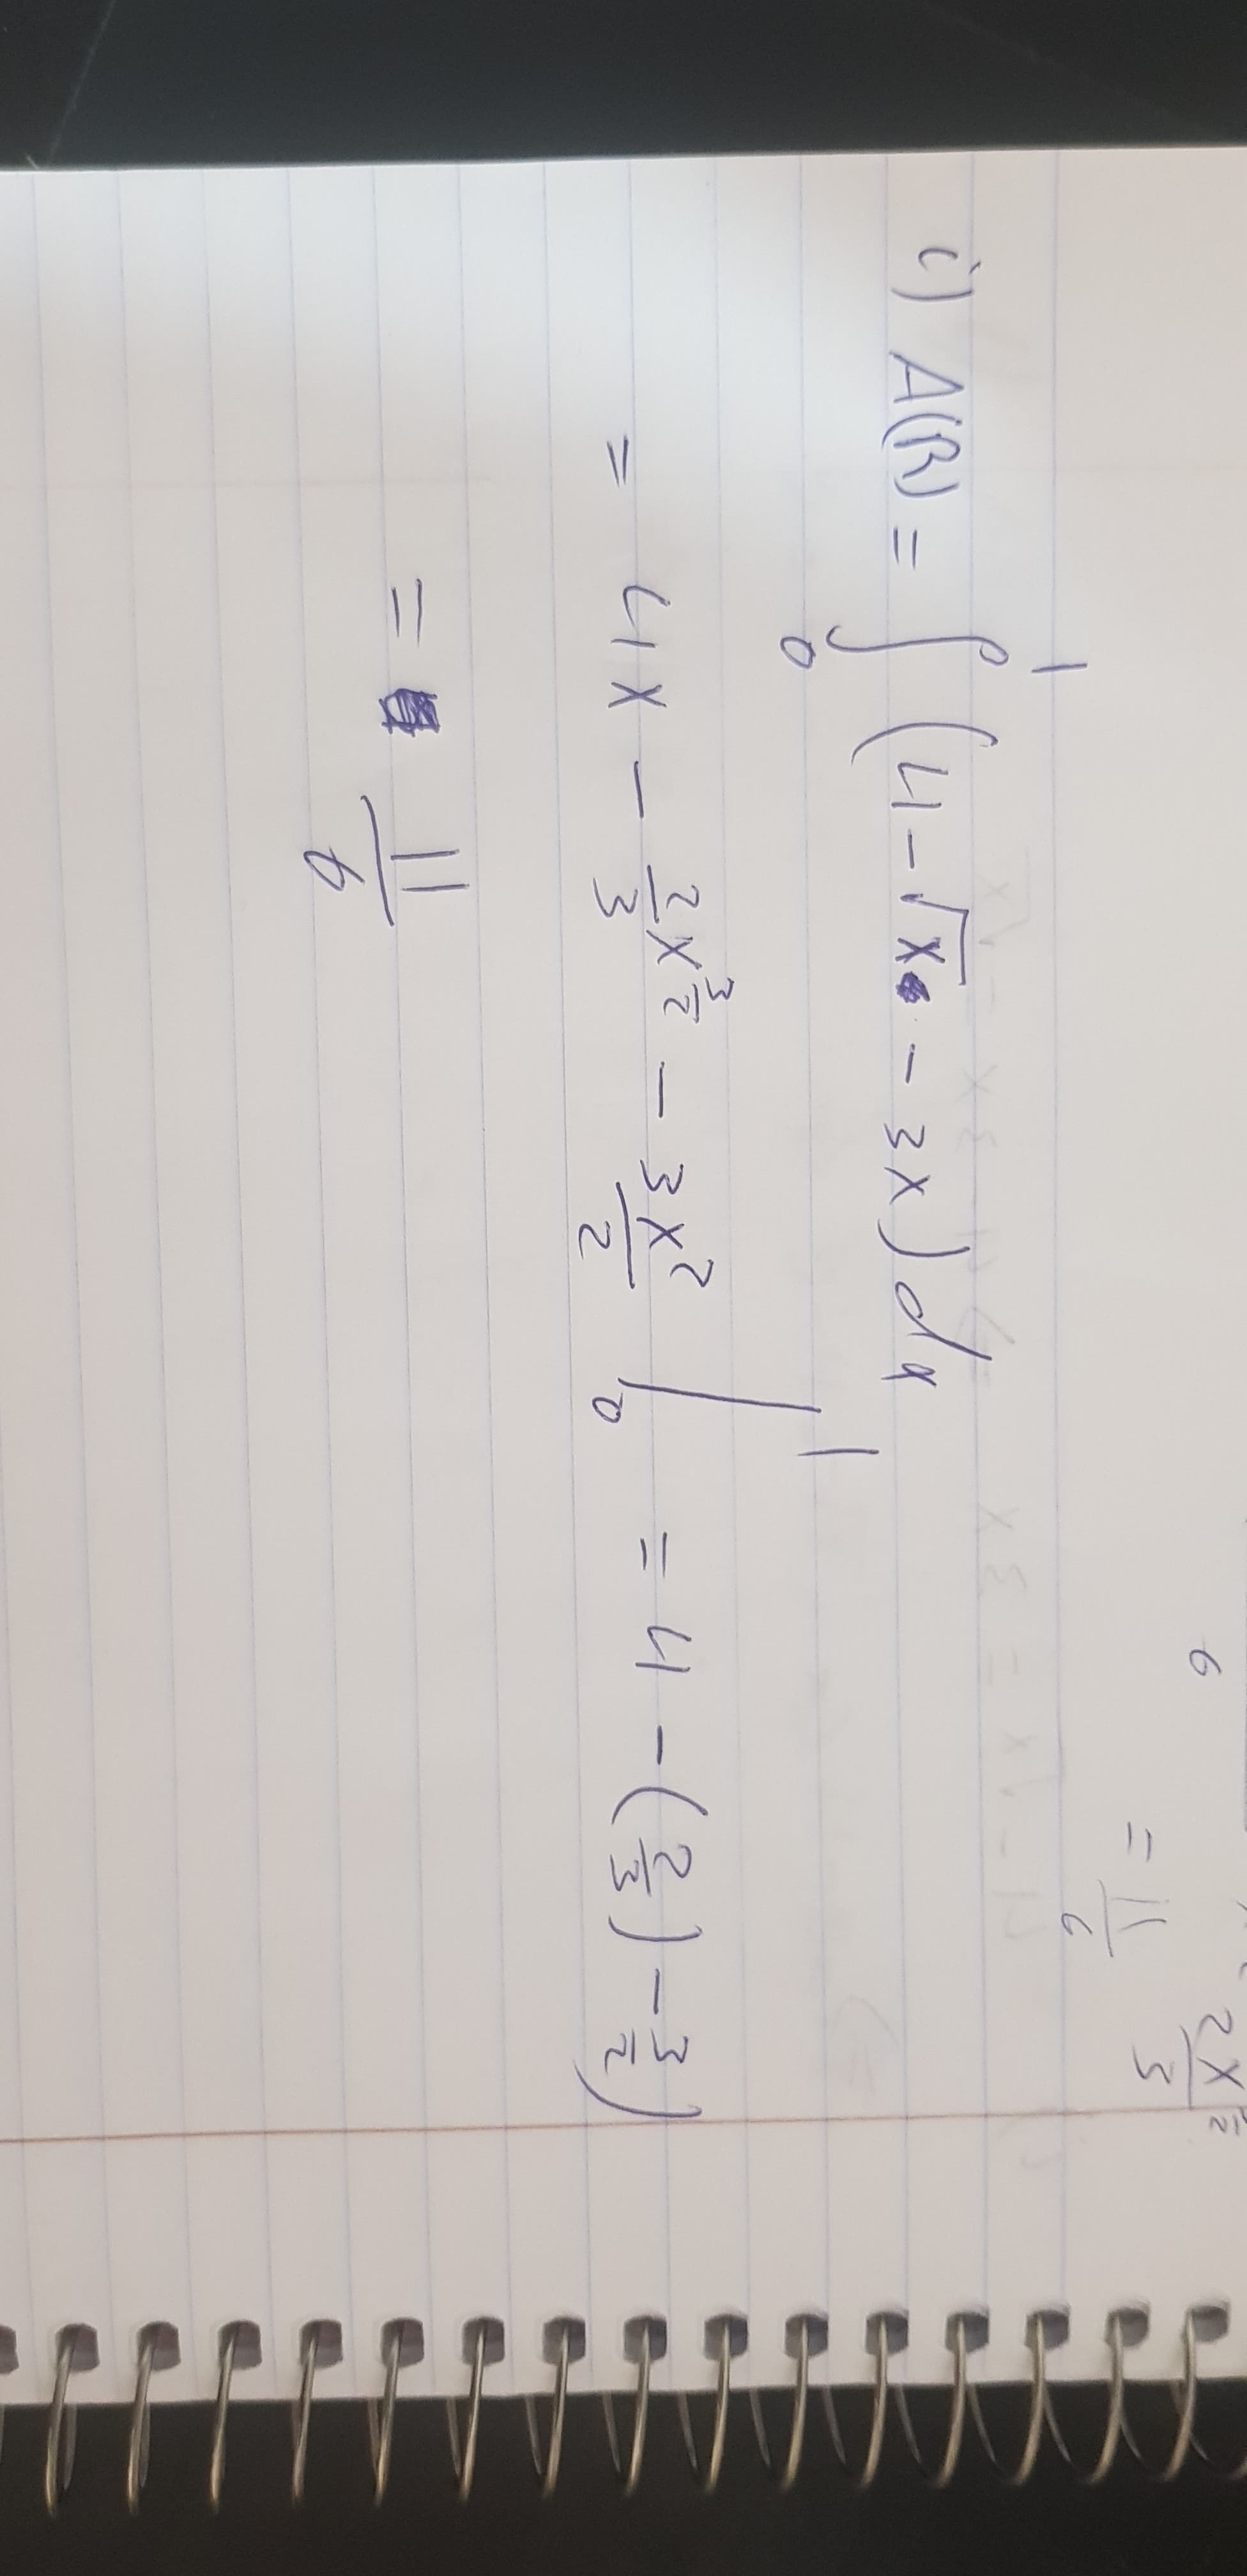 6
2x
3
= 11/6
i) A(R) = ∫₀¹ (4 - √x - 3x) dx
= 4x - 2/3 x^(3/2) - 3x²/2 |₀¹ = 4 - (2/3) - 3/2)
= 11/6